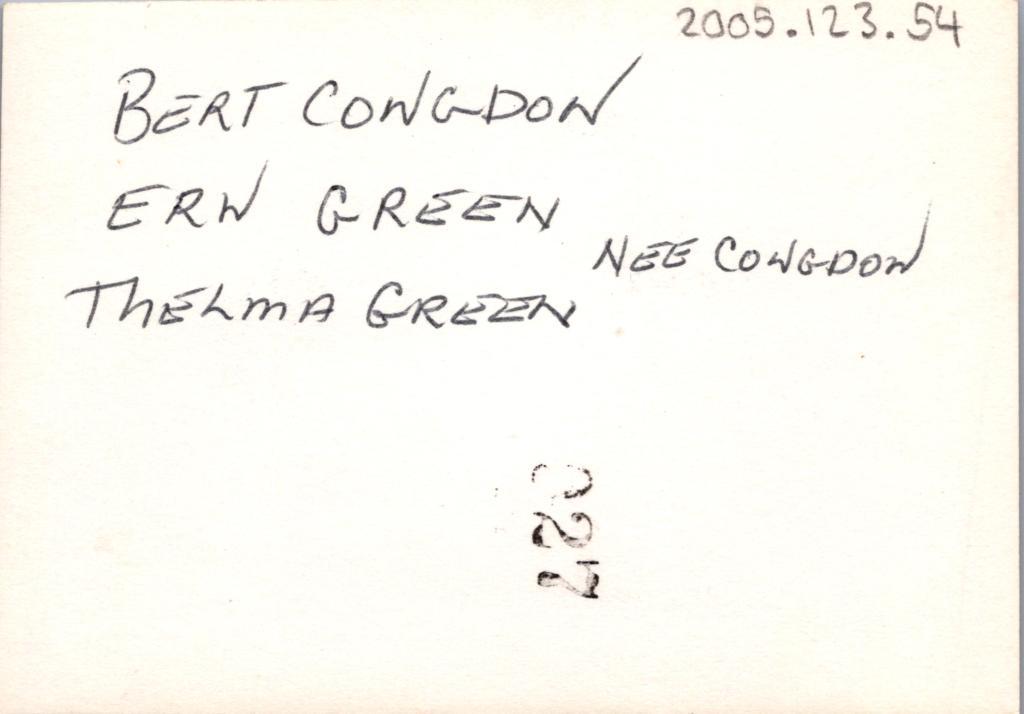 2005.123.54
BERT CONGDON
ERN GREEN
NEE CONGDON
THELMA GREEN
027